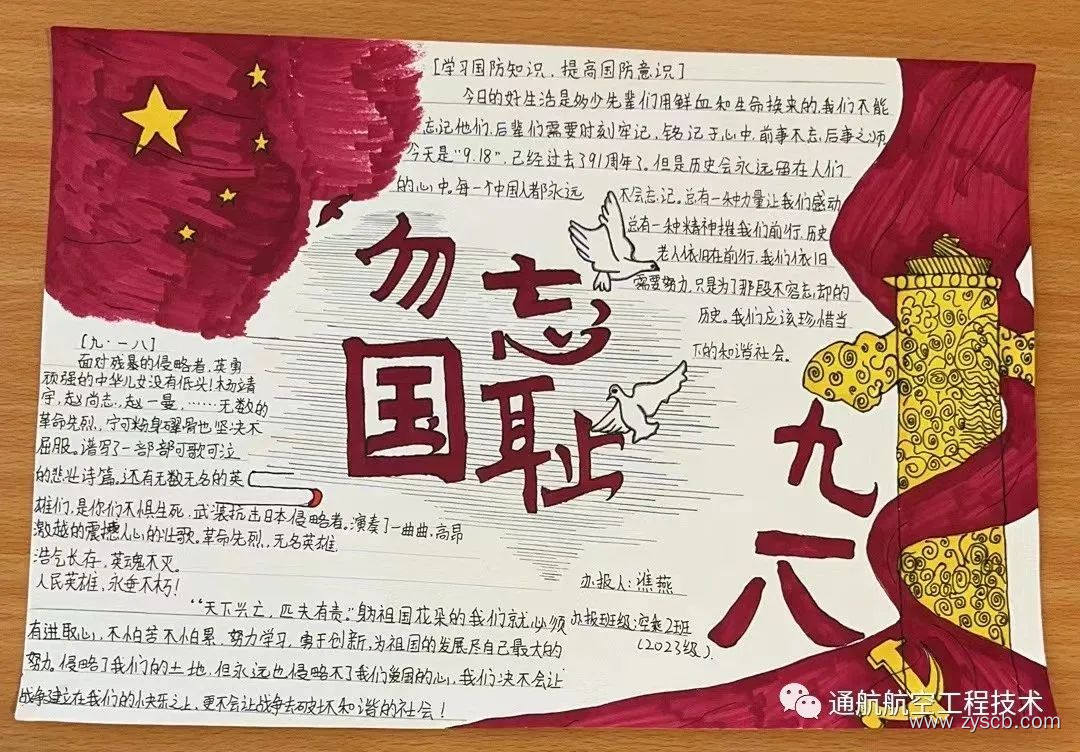 [学习国防知识，提高国防意识]
今日的好生活是多少先辈们用鲜血和生命换来的,我们不能
忘记他们,后辈们需要时刻牢记,铭记于心中,前事不忘,后事之师
今天是“9.18”,已经过去了91周年了,但是历史会永远留在人们
的心中。每一个中国人都永远 不会忘记。总有一种力量让我们感动
总有一种精神摧我们前行,历史
老人依旧在前行,我们依旧
需要努力,只是为了那段不容忘却的
历史。我们应该珍惜当
下的和谐社会。
勿忘
国耻
九一八
[九·一八]
面对残暴的侵略者,英勇
顽强的中华儿女没有低头!杨靖
宇,赵尚志,赵一曼,……无数的
革命先烈,宁可粉身碎骨也坚决不
屈服。谱写了一部部可歌可泣
的悲壮诗篇。还有无数无名的英
雄们,是你们不惧生死,武装抗击日本侵略者。演奏了一曲曲,高昂
激越的震撼人心的壮歌。革命先烈,无名英雄
浩气长存,英魂不灭。
人民英雄,永垂不朽!
“天下兴亡,匹夫有责”身为祖国花朵的我们就必须
有进取心,不怕苦不怕累,努力学习,勇于创新,为祖国的发展尽自己最大的
努力。侵略了我们的土地,但永远也侵略不了我们爱国的心,我们决不会让
战争建立在我们的快乐之上,更不会让战争去破坏和谐的社会!
办报人:燕
办报班级:空乘2班
(2023级).
通航航空工程技术
www.zyscb.com